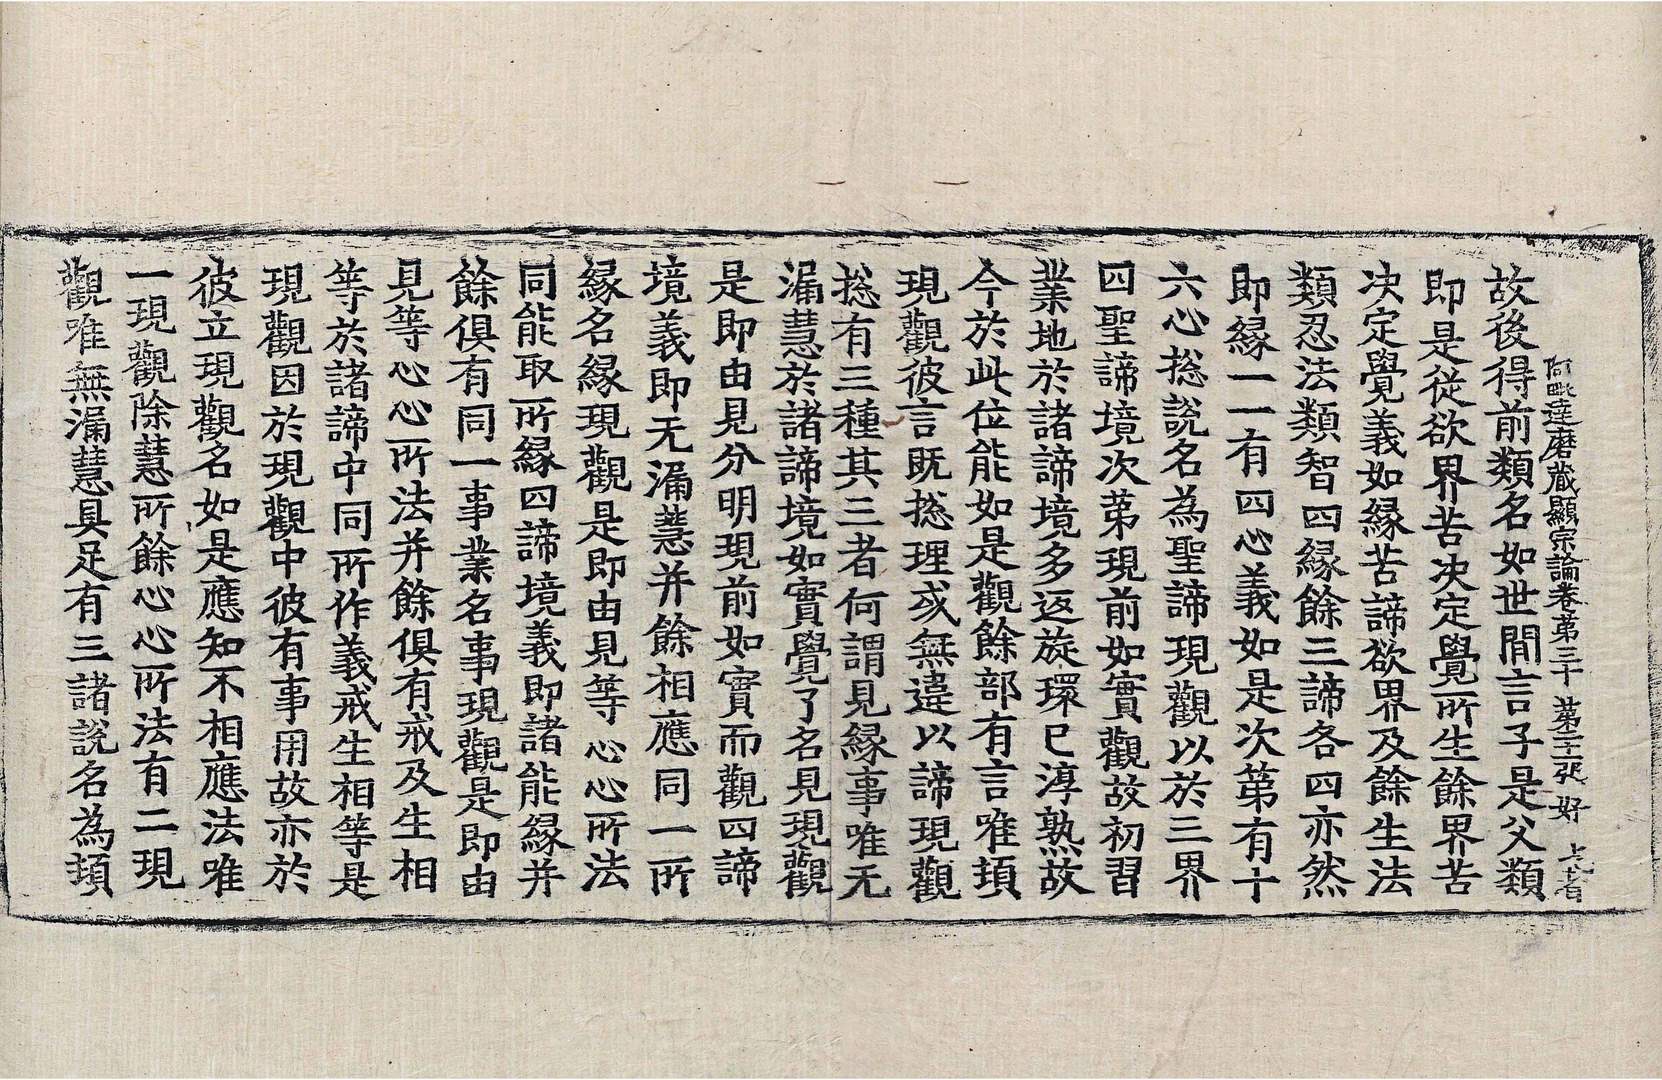 阿毗達磨藏顯宗論卷第三十 第二十二張 好
故後得前類名如世間言子是父類
即是從欲界苦決定覺所生餘界苦
決定覺義如緣苦諦欲界及餘生法
類忍法類智四緣餘三諦各四亦然
即緣一一有四心義如是次第有十
六心捴說名為聖諦現觀以於三界
四聖諦境次苐現前如實觀故初習
業地於諸諦境多返旋環已淳熟故
今於此位能如是觀餘部有言唯頓
現觀彼言既捴理或無違以諦現觀
捴有三種其三者何謂見緣事唯无
漏慧於諸諦境如實覺了名見現觀
是即由見分明現前如實而觀四諦
境義即无漏慧并餘相應同一所
緣名緣現觀是即由見等心心所法
同能取所緣四諦境義即諸能緣并
餘俱有同一事業名事現觀是即由
見等心心所法并餘俱有戒及生相
等於諸諦中同所作義戒生相等是
現觀因於現觀中彼有事用故亦於
彼立現觀名如是應知不相應法唯
一現觀除慧所餘心心所法有二現
觀唯無漏慧具足有三諸說名為頓